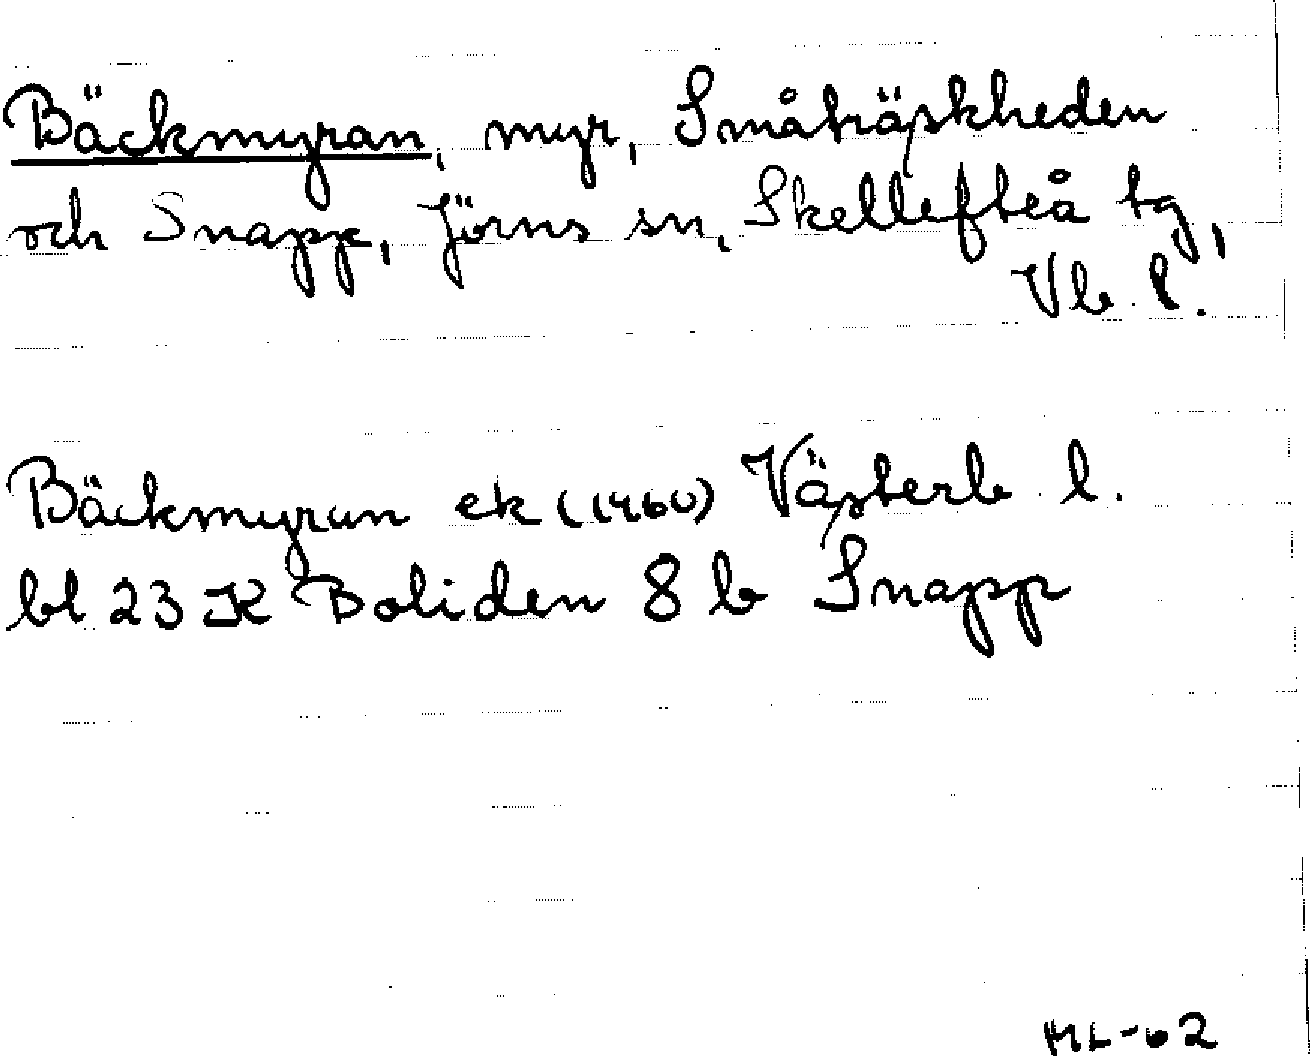 Bäckmyran, myr, Småträskheden
och Snapp, Jörns sn, Skellefteå tg,
Vb. l.
Bäckmyran ek (1960) Västerb. l.
bl 23 K Boliden 8 b Snapp
ML-62